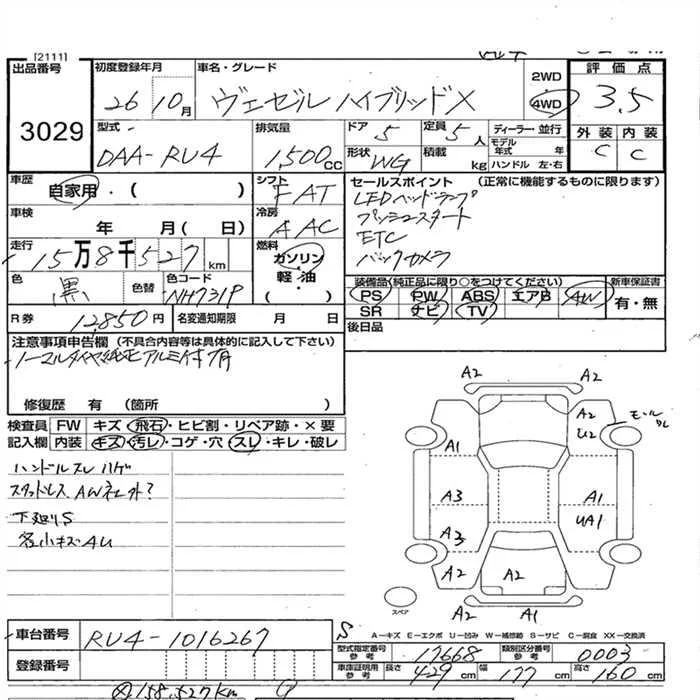 [2111]
出品番号 初度登録年月 車名・グレード 2WD 評価点
3029 26 10月 ヴェゼル ハイブリッドX 4WD 3.5
型式 排気量 ドア 定員 ディーラー・並行 外装 内装
DAA-RU4 1,500cc 5 5人 モデル年式 年 C C
形状 積載 WG kg ハンドル 左・右
車歴 自家用・( ) シフト FAT セールスポイント (正常に機能するものに限ります)
LEDヘッドランプ
プッシュスタート
ETC
バックカメラ
車検 年 月(日) 冷房 AAC
走行 15万8千527km 燃料 ガソリン 軽・油 ・( )
色 黒 色替 色コード NH731P
装備品(純正品に限り○をつけてください) 新車保証書
PS PW ABS エアB AW 有・無
SR ナビ TV
R券 12,850円 名変通知期限 月 日 後日品
注意事項申告欄 (不具合内容等は具体的に記入して下さい)
ノーマルタイヤ純正アルミ付
修復歴 有 (箇所 )
検査員記入欄 FW キズ・飛石・ヒビ割・リペア跡・×要
内装 キズ・汚レ・コゲ・穴・スレ・キレ・破レ
ハンドルスレ ハゲ
スタッドレス、AW社外?
下廻りS
各小キズAU
A2 A2
A2
U2 モール
A1
A3 A1
UA1
A3
A2 A2 A2
スペア
A2 A1
S
A-キズ E-エクボ U-凹み W-補修跡 S-サビ C-腐食 XX-交換済
車台番号 RU4-1016267
型式指定番号 参考 17668 類別区分番号 参考 0003
登録番号
車庫証明用 参考 長さ 429cm 幅 177cm 高さ 160cm
158,527km